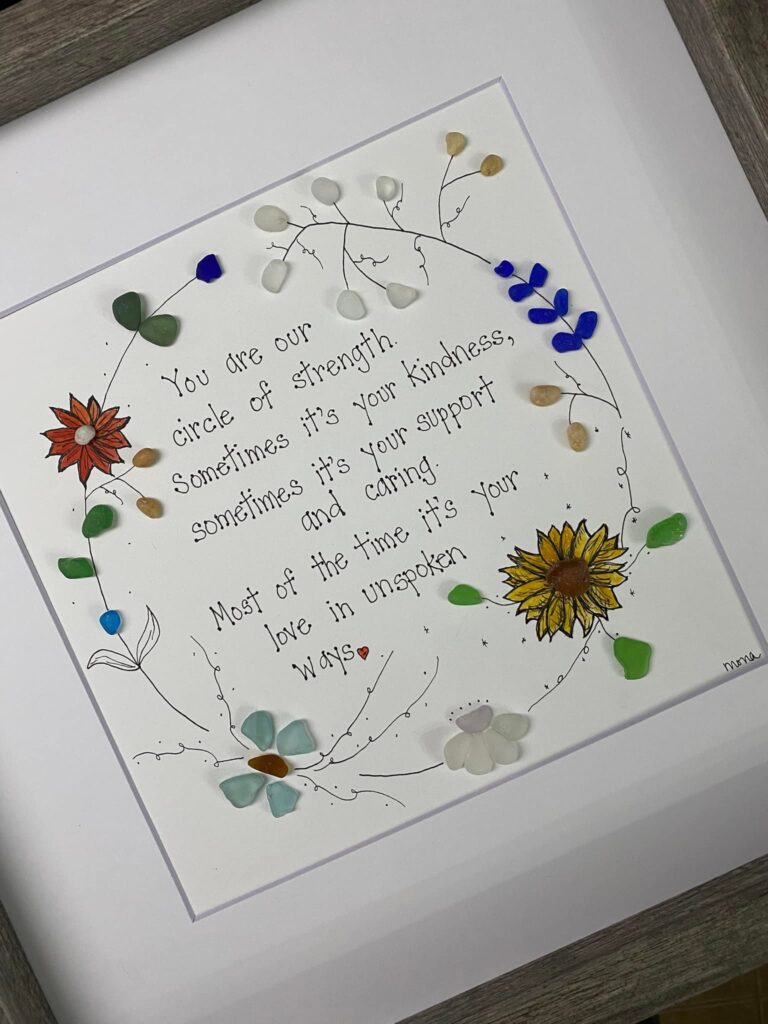 You are our
circle of strength.
Sometimes it's your kindness,
sometimes it's your support
and caring.
Most of the time it's your
love in unspoken
ways
mona